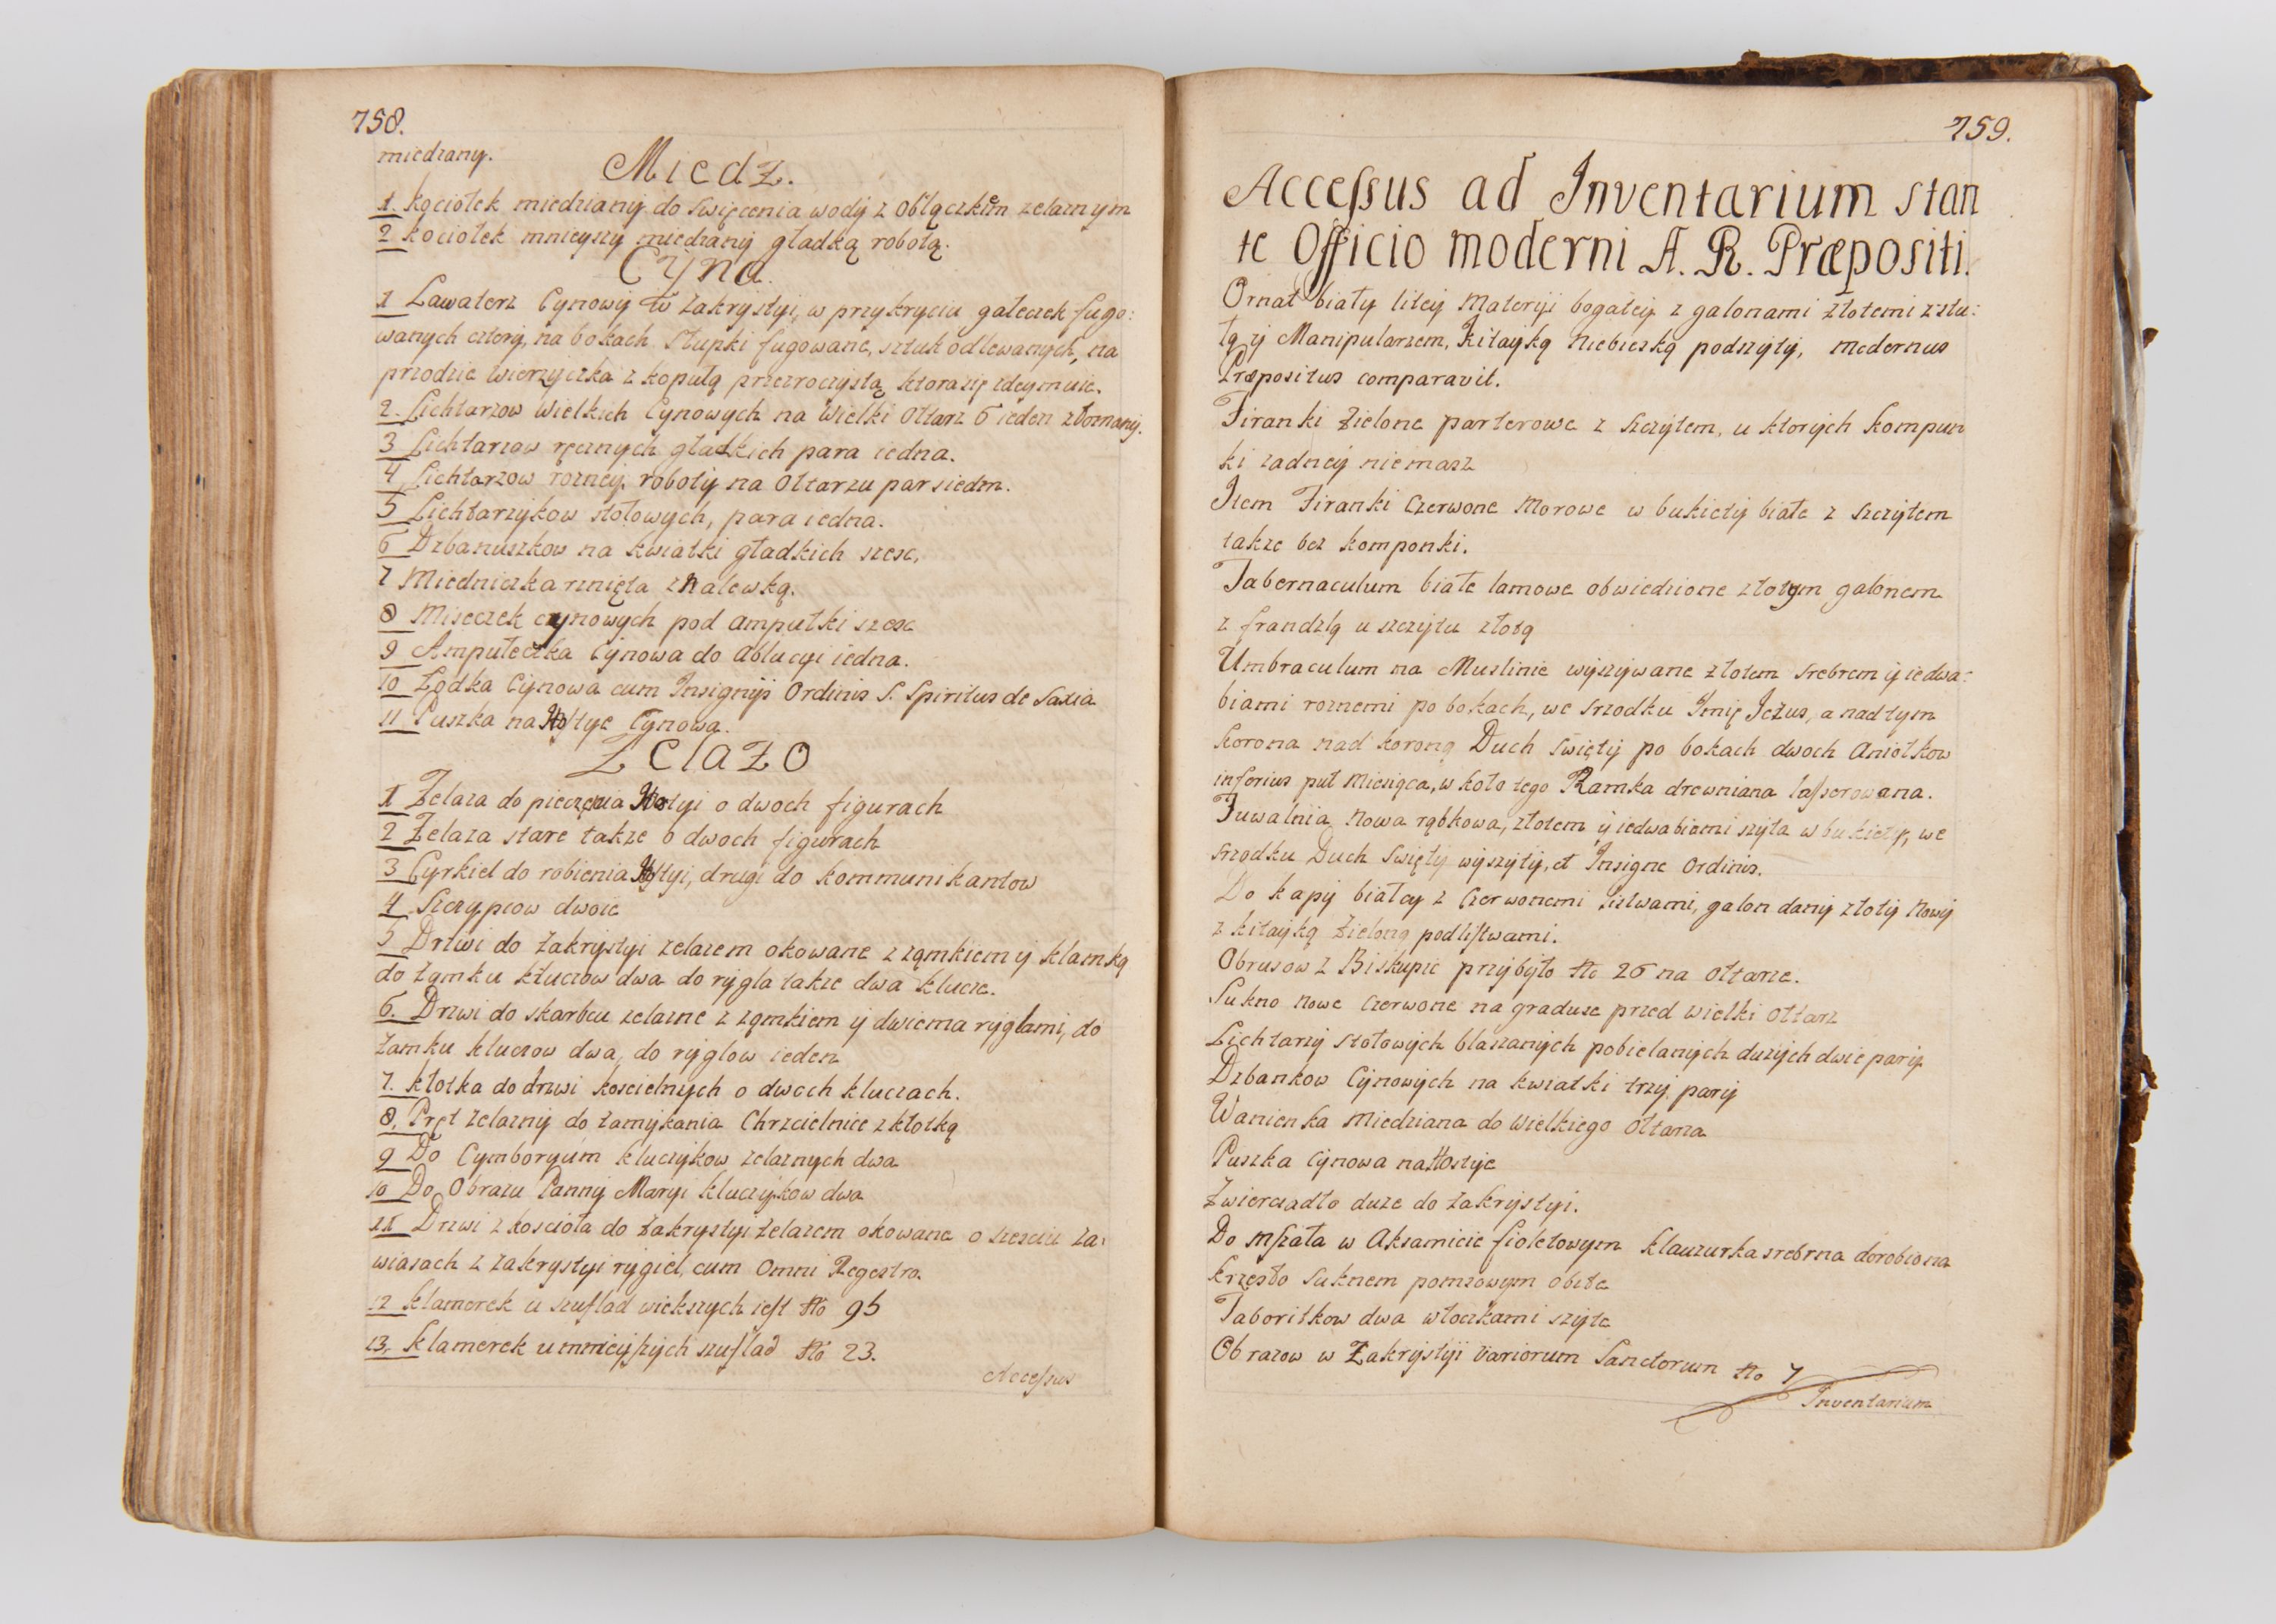 758.
miedziany.
Miedz.
1. kociołek miedziany do swięcenia wody z obłączkiem zelaznym
2 kociołek mnieyszy miedziany gładką robotą.
Cyna.
1 Lawaterz Cynowy w Zakrystyi, w przykryciu gałeczek fugo:
wanych cztery, na bokach słupki fugowane, sztuk odlewanych, na
przodzie wierzyczka z kopułą przezroczystą ktora się zdeymuie.
2. Lichtarzow Wielkich Cynowych na Wielki Ołtarz 6 ieden złomany.
3 Lichtarzow ręcznych gładkich para iedna.
4 Lichtarzow rozney roboty na Ołtarzu par siedm.
5 Lichtarzykow stołowych, para iedna.
6 Dzbanuszkow na kwiatki gładkich szesc,
7 Miedniczka rznięta z Nalewką.
8 Miseczek cynowych pod ampułki szesc
9 Ampułeczka Cynowa do ablucyi iedna.
10 Łodka Cynowa cum Insignijs Ordinis S. Spiritus de Saxia
11 Puszka na Hostye Cynowa.
Zelazo
1 Zelaza do pieczenia Hostyi o dwoch figurach
2 Zelaza stare takze o dwoch figurach
3 Cyrkiel do robienia Hostyi, drugi do kommunikantow
4 Szczypcow dwoie
5 Drzwi do Zakrystyi zelazem okowane z ząmkiem y klamką
do ząmku kluczow dwa do rygla takze dwa klucze.
6. Drzwi do skarbcu zelazne z ząmkiem y dwiema ryglami, do
zamku kluczow dwa, do ryglow ieden
7. kłotka do drzwi koscielnych o dwoch kluczach.
8. Pręt zelazny do zamykania Chrzcielnice z kłotką
9 Do Cymboryum kluczykow zelaznych dwa
10 Do Obrazu Panny Maryi kluczykow dwa
11 Drzwi z koscioła do zakrystyi zelazem okowane o szesciu za:
wiasach z zakrystyi rygiel, cum omni Regestro.
12 klamerek u szuflad wiekszych iest No 95
13. klamerek u mnieyszych szuflad No 23.
Accessus
759.
Accessus ad Inventarium stan
te Officio moderni A. R. Præpositi.
Ornat biały litey Materyi bogatey z galonami złotemi z stu:
łą y Manipularzem, kitayką niebieską podszyty, modernus
Præpositus comparavit.
Firanki zielone parterowe z szczytem, u ktorych kompun
ki zadney niemasz
Item Firanki Czerwone Morowe w bukiety białe z szczytem
takze bez komponki.
Tabernaculum białe lamowe obwiedzione złotym galonem
z frandzlą u szczytu złotą
Umbraculum na Muslinie wyszywane złotem srebrem y iedwa:
biami roznemi po bokach, we srzodku Imię Jezus, a nad tym
korona nad koroną Duch swięty po bokach dwoch Aniołkow
inferius puł Miesiąca, w koło tego Ramka drewniana lasserowana.
Tuwalnia Nowa rąbkowa, złotem y iedwabiemi szyta w bukiety, we
srzodku Duch Swięty wyszyty, et Insigne Ordinis.
Do kapy białey z Czerwonemi listwami, galon dany złoty Nowy
z kitayką zieloną pod listwami.
Obrusow z Biskupic przybyło No 26 na ołtarze.
Sukno Nowe Czerwone na graduse przed wielki ołtarz
Lichtarzy stołowych blaszanych pobielanych duzych dwie pary
Dzbankow Cynowych na kwiatki trzy pary
Wanienka Miedziana do Wielkiego Ołtarza
Puszka Cynowa na Hostye
Zwierciadło duze do zakrystyi.
Do Mszała w Aksamicie fioletowym klauzurka srebrna dorobiona
krzesło suknem pomsowym obite
Taboritkow dwa włoczkami szyte
Obrazow w Zakrystyi variorum Sanctorum No 7
Inventarium